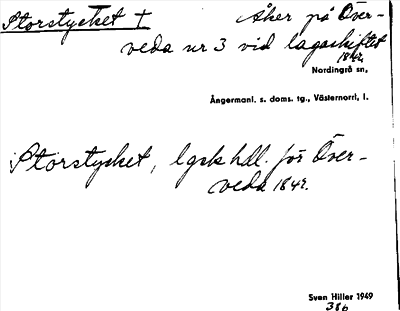 Storstycket † åker på Över-
veda nr 3 vid lagaskiftet
1842.
Nordingrå sn,
Ångermanl. s. doms. tg., Västernorrl, l.
Storstycket, lgsk hdl. för Över-
veda 1842.
Sven Hiller 1949
386